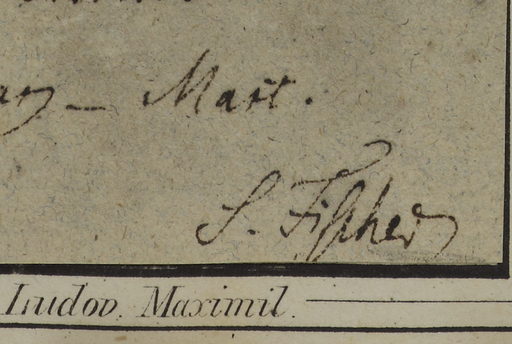 – Mart.
S. Fischer
Ludov. Maximil.